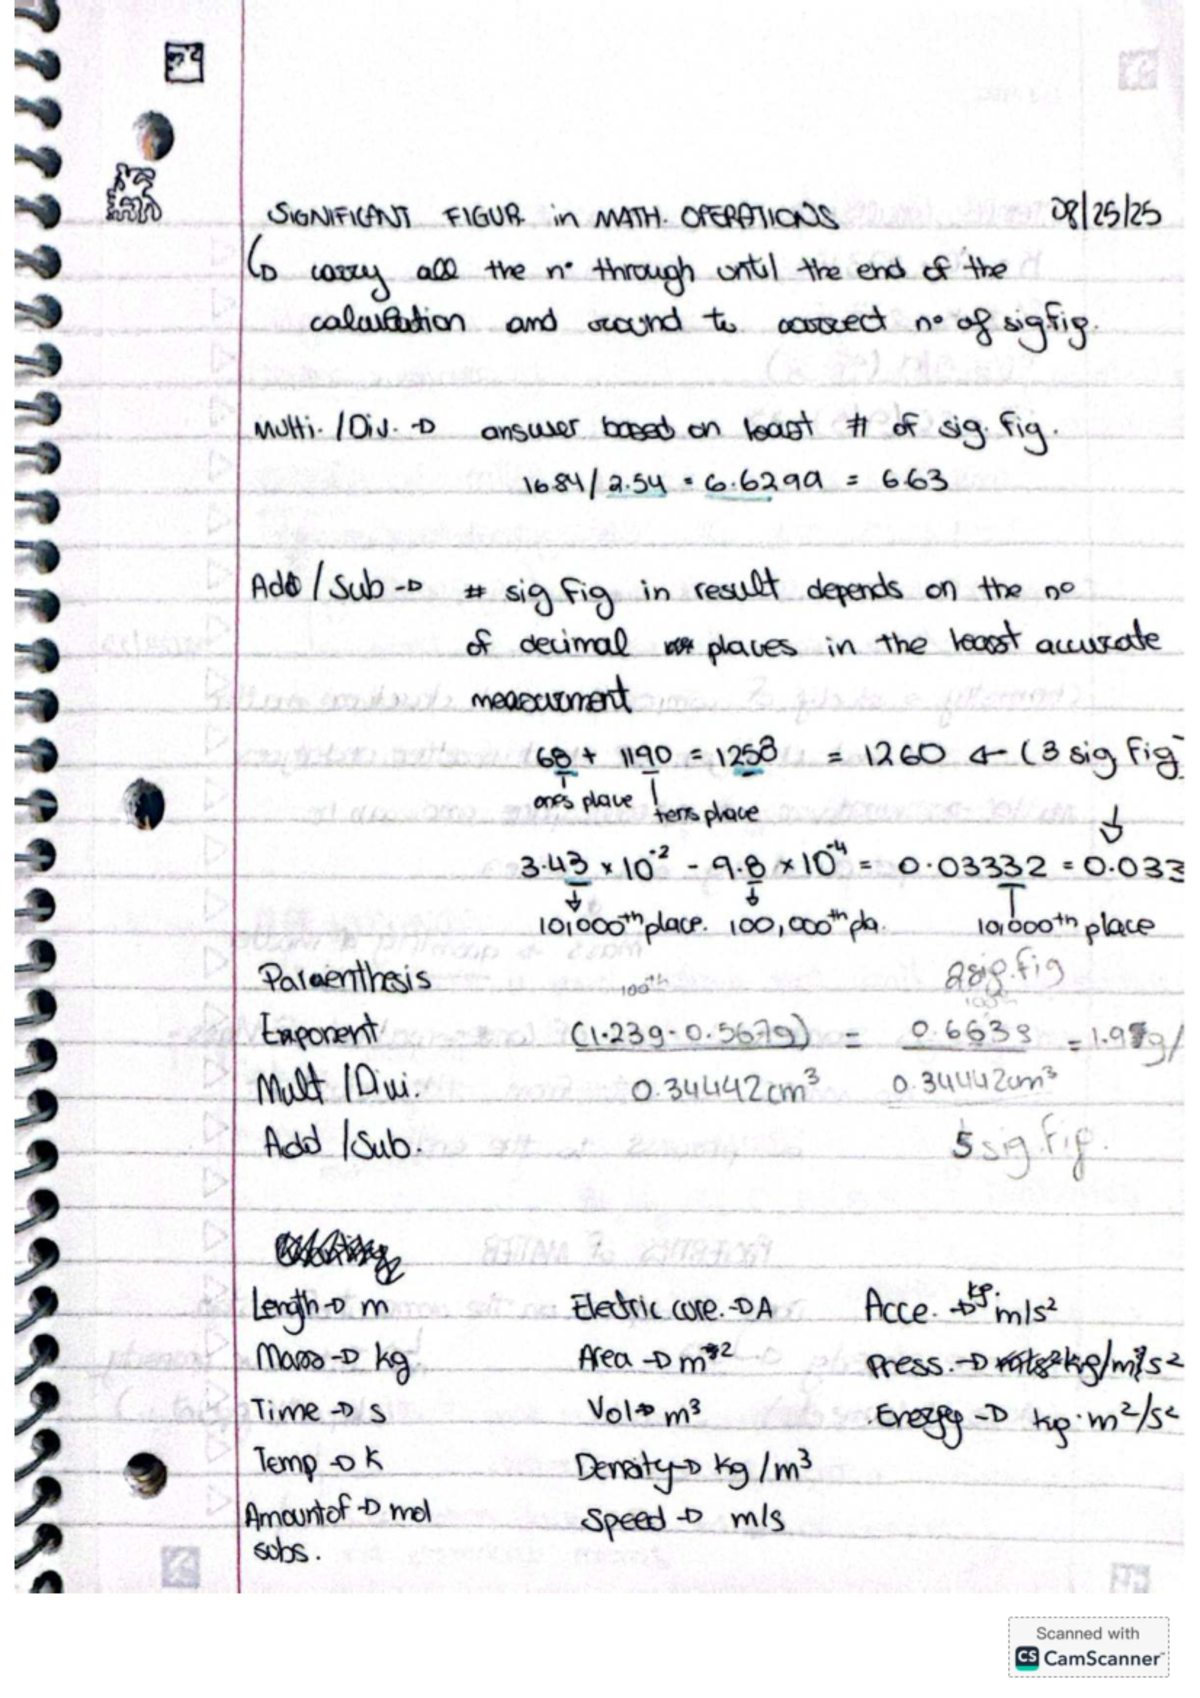 SIGNIFICANT FIGUR. in MATH. OPERATIONS 08/25/25
carry all the n° through until the end of the
calculation and round to correct n° of sig.fig.
Multi. /Div. → answer based on least # of sig. fig.
16.84/2.54 = 6.6299 = 6.63
Add /Sub → # sig fig in result depends on the n°
of decimal places in the least accurate
measurment
68 + 1190 = 1258 = 1260 ← (3 sig fig)
ones place tens place
3.43 × 10⁻² - 9.8 × 10⁻⁴ = 0.03332 = 0.033
10,000th place. 100,000th pla. 10,000th place
Parenthesis 100th 2sig.fig
Exponent (1.23g - 0.567g) = 0.663g = 1.9 g/
Mult /Divi. 0.34442cm³ 0.34442cm³
Add /Sub. 5 sig.fig.
Length → m Electric curre. → A Acce. → m/s²
Mass → kg Area → m² Press. → kg/m s²
Time → s Vol → m³ Energy → kg·m²/s²
Temp → K Density → kg/m³
Amount of → mol Speed → m/s
subs.
Scanned with
CS CamScanner